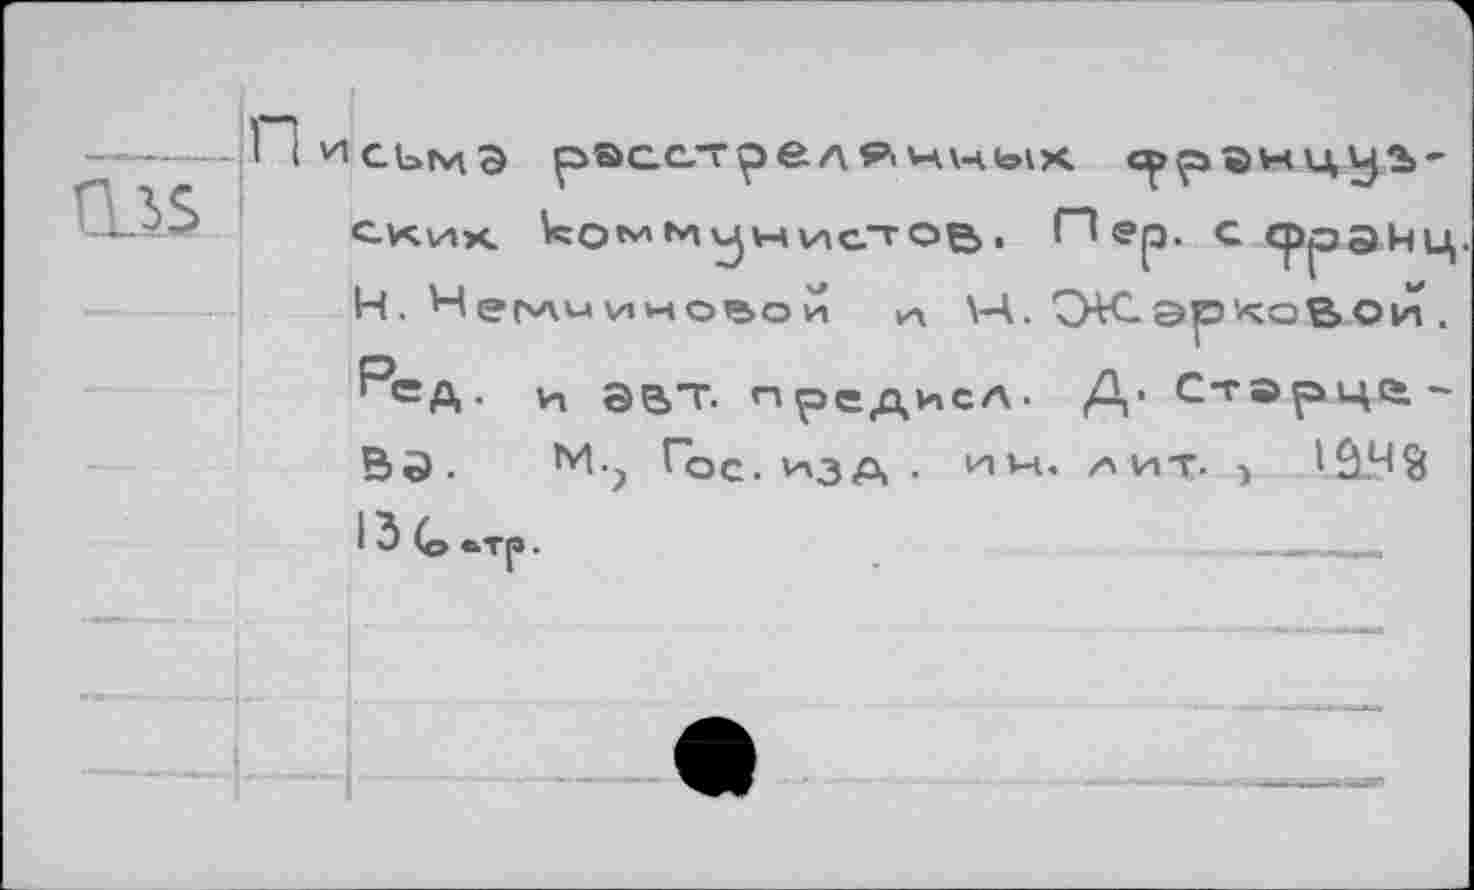 Письма расстрелянных француз-
П35
ских коммунистов. Пер. с франц.
Н. Немчиновой и Н. Жарковой.
Ред. и авт. предисл. Д. Старце-
ва. М., Гос. изд. ин. лит., 1948
136 стр.